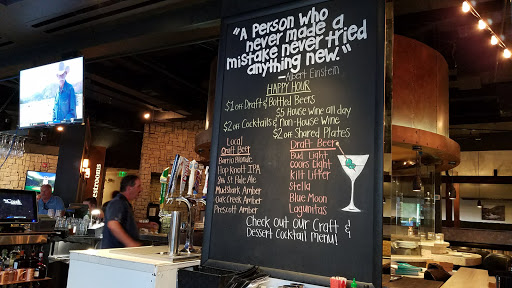 "A Person Who
never made a
mistake never tried
anything new."
—Albert Einstein
HAPPY HOUR
$1 off Draft & Bottled Beers
$5 House Wine all day
$2 off Cocktails & non-House Wine
$2 off Shared Plates
Local
Craft Beer
Barrio Blonde
Hop Knott IPA
8th St Pale Ale
Mudshark Amber
Oak Creek Amber
Prescott Amber
Draft Beer
Bud Light
Coors Light
Kilt Lifter
Stella
Blue Moon
Lagunitas
Check out our Craft &
Dessert Cocktail Menu!
restrooms